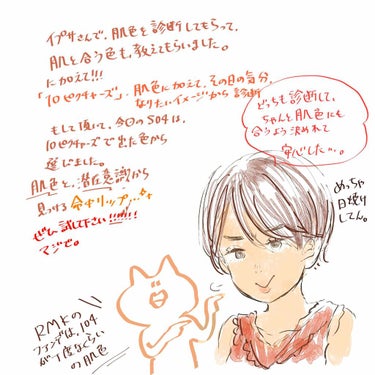 イプサさんで、肌色を診断してもらって、
肌と合う色も、教えてもらいました。
に加えて!!!
「10ピクチャーズ」、肌色に加えて、その日の気分、
なりたいイメージから診断
もして頂いて、今回の504は、
10ピクチャーズで出た色から
選びました。
肌色と、潜在意識から
見つける今日リップ…
ぜひ試して下さい!!!!!!
マジで。
どっちも診断して、
ちゃんと肌色にも
合うよう決めれて
安心した〜。
めっちゃ
日焼け
してん。
RMKの
ファンデは、104
が丁度なくらい
の肌色